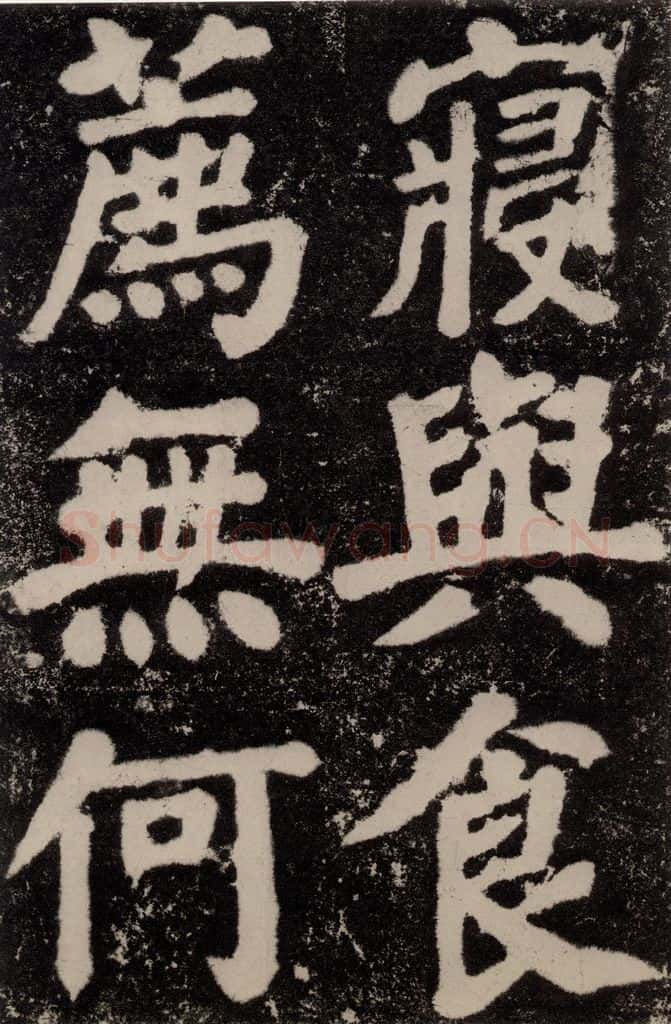 寢與食
薦無何
Shufawang.CN